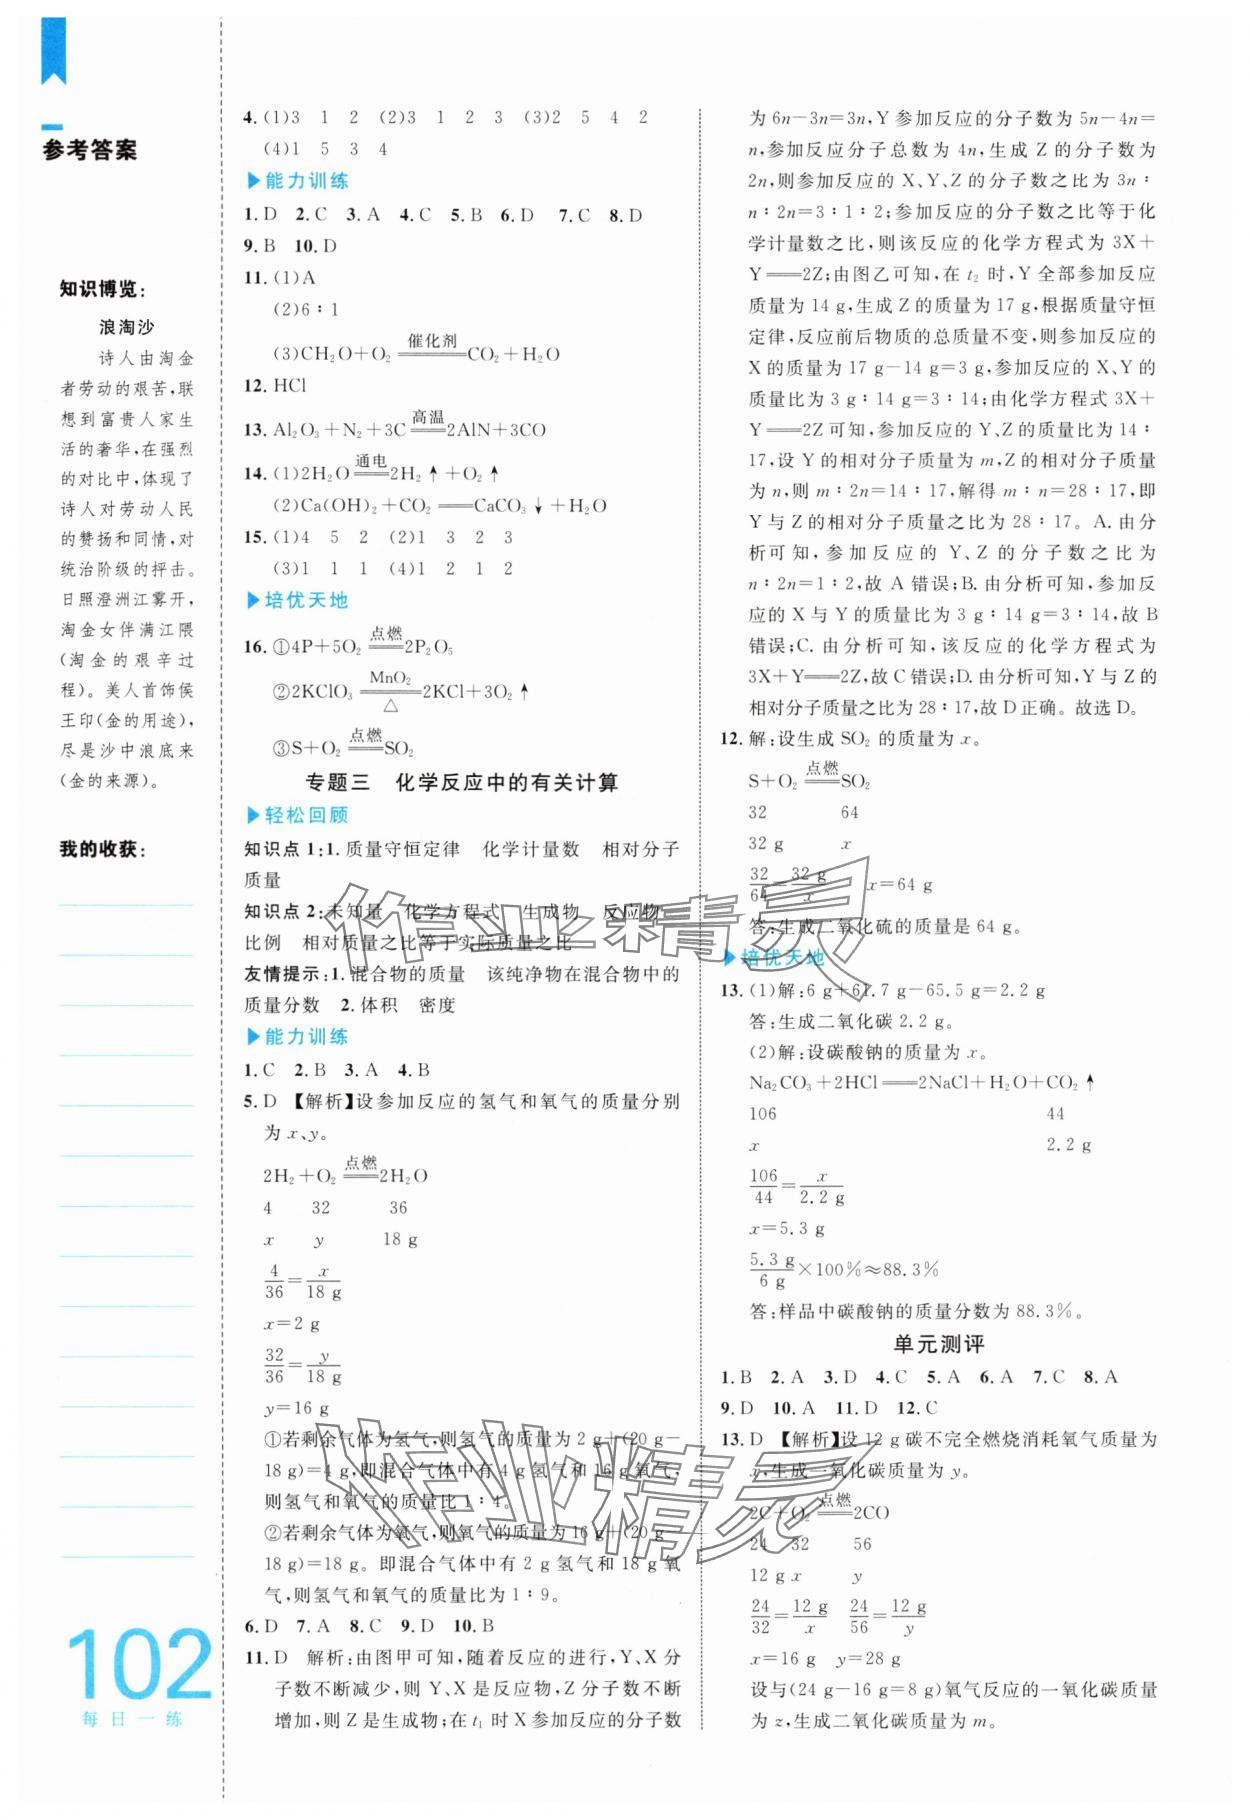 参考答案
知识博览：
浪淘沙
诗人由淘金
者劳动的艰苦,联
想到富贵人家生
活的奢华,在强烈
的对比中,体现了
诗人对劳动人民
的赞扬和同情,对
统治阶级的抨击。
日照澄洲江雾开,
淘金女伴满江隈
(淘金的艰辛过
程)。美人首饰侯
王印(金的用途),
尽是沙中浪底来
(金的来源)。
我的收获：
102
每日一练
4. (1)3 1 2 (2)3 1 2 3 (3)2 5 4 2
(4)1 5 3 4
▶能力训练
1. D 2. C 3. A 4. C 5. B 6. D 7. C 8. D
9. B 10. D
11. (1)A
(2)6∶1
(3)CH₂O+O₂ 催化剂═══ CO₂+H₂O
12. HCl
13. Al₂O₃+N₂+3C 高温═══ 2AlN+3CO
14. (1)2H₂O 通电═══ 2H₂↑+O₂↑
(2)Ca(OH)₂+CO₂═══CaCO₃↓+H₂O
15. (1)4 5 2 (2)1 3 2 3
(3)1 1 1 (4)1 2 1 2
▶培优天地
16. ①4P+5O₂ 点燃═══ 2P₂O₅
②2KClO₃ MnO₂═══△ 2KCl+3O₂↑
③S+O₂ 点燃═══ SO₂
专题三 化学反应中的有关计算
▶轻松回顾
知识点1:1. 质量守恒定律 化学计量数 相对分子
质量
知识点2:未知量 化学方程式 生成物 反应物
比例 相对质量之比等于实际质量之比
友情提示:1. 混合物的质量 该纯净物在混合物中的
质量分数 2. 体积 密度
▶能力训练
1. C 2. B 3. A 4. B
5. D 【解析】设参加反应的氢气和氧气的质量分别
为 x、y。
2H₂+O₂ 点燃═══ 2H₂O
4 32 36
x y 18 g
4/36=x/18 g
x=2 g
32/36=y/18 g
y=16 g
①若剩余气体为氢气,则氢气的质量为 2 g+(20 g-
18 g)=4 g,即混合气体中有 4 g 氢气和 16 g 氧气,
则氢气和氧气的质量比 1∶4。
②若剩余气体为氧气,则氧气的质量为 16 g+(20 g
18 g)=18 g。即混合气体中有 2 g 氢气和 18 g 氧
气,则氢气和氧气的质量比为 1∶9。
6. D 7. A 8. C 9. D 10. B
11. D 解析:由图甲可知,随着反应的进行,Y、X 分
子数不断减少,则 Y、X 是反应物,Z 分子数不断
增加,则 Z 是生成物;在 t₁ 时 X 参加反应的分子数
为 6n-3n=3n,Y 参加反应的分子数为 5n-4n=
n,参加反应分子总数为 4n,生成 Z 的分子数为
2n,则参加反应的 X、Y、Z 的分子数之比为 3n∶
n∶2n=3∶1∶2;参加反应的分子数之比等于化
学计量数之比,则该反应的化学方程式为 3X+
Y═══2Z;由图乙可知,在 t₂ 时,Y 全部参加反应
质量为 14 g,生成 Z 的质量为 17 g,根据质量守恒
定律,反应前后物质的总质量不变,则参加反应的
X 的质量为 17 g-14 g=3 g,参加反应的 X、Y 的
质量比为 3 g∶14 g=3∶14;由化学方程式 3X+
Y═══2Z 可知,参加反应的 Y、Z 的质量为 14∶
17,设 Y 的相对分子质量为 m,Z 的相对分子质量
为 n,则 m∶2n=14∶17,解得 m∶n=28∶17,即
Y 与 Z 的相对分子质量之比为 28∶17。A. 由分
析可知,参加反应的 Y、Z 的分子数之比为
n∶2n=1∶2,故 A 错误;B. 由分析可知,参加反
应的 X 与 Y 的质量比为 3 g∶14 g=3∶14,故 B
错误;C. 由分析可知,该反应的化学方程式为
3X+Y═══2Z,故 C 错误;D. 由分析可知,Y 与 Z 的
相对分子质量之比为 28∶17,故 D 正确。故选 D。
12. 解:设生成 SO₂ 的质量为 x。
S+O₂ 点燃═══ SO₂
32 64
32 g x
32/64=32 g/x x=64 g
答:生成二氧化硫的质量是 64 g。
▶培优天地
13. (1)解:6 g+61.7 g-65.5 g=2.2 g
答:生成二氧化碳 2.2 g。
(2)解:设碳酸钠的质量为 x。
Na₂CO₃+2HCl═══2NaCl+H₂O+CO₂↑
106 44
x 2.2 g
106/44=x/2.2 g
x=5.3 g
5.3 g/6 g×100%≈88.3%
答:样品中碳酸钠的质量分数为 88.3%。
单元测评
1. B 2. A 3. D 4. C 5. A 6. A 7. C 8. A
9. D 10. A 11. D 12. C
13. D 【解析】设 12 g 碳不完全燃烧消耗氧气质量为
x,生成一氧化碳质量为 y。
2C+O₂ 点燃═══ 2CO
24 32 56
12 g x y
24/32=12 g/x 24/56=12 g/y
x=16 g y=28 g
设与(24 g-16 g=8 g)氧气反应的一氧化碳质量
为 z,生成二氧化碳质量为 m。
作业精灵
作业精灵